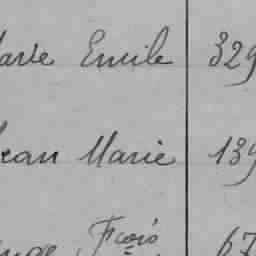 arie Emile 329
Jean Marie 139
Fçois 67